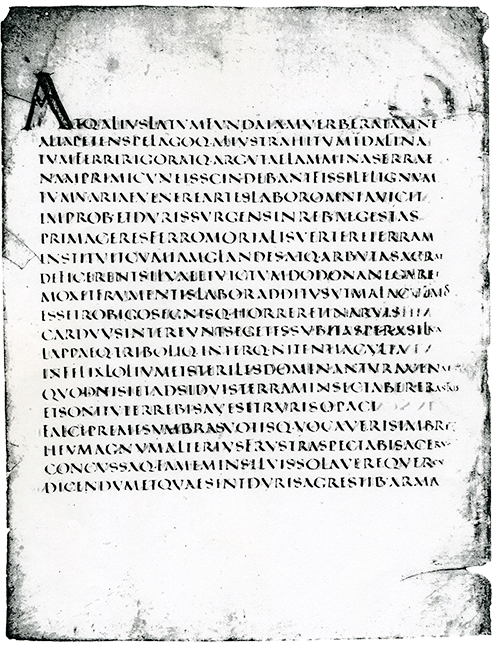 ATQ·ALIVSLATVMFVNDAIAMVERBERATAMNE
ALTAPETENSPELAGOQ·ALIVSTRAHITVMIDALINA
TVMFERRIRIGORATQ·ARGVTAELAMMINASERRAE
NAMPRIMICVNEISSCINDEBANTFISSILELIGNVM
TVMVARIAEVENEREARTESLABOROMNIAVICIT
IMPROBETDVRISSVRGENSINREBVSEGESTAS
PRIMACERESFERROMORTALISVERTERETERRAM
INSTITVITCVMIAMGLANDESATQ·ARBVTASACRAE
DEFICERENTSILVAEETVICTVMDODONANEGARET
MOXETFRVMENTISLABORADDITVSVTMALACVLMOS
ESSETROBIGOSEGNISQ·HORRERETINARVIS
CARDVVSINTEREVNTSEGETESSVBITASPERASILVA
LAPPAEQ·TRIBOLIQ·INTERQ·NITENTIACVLTA
INFELIXLOLIVMETSTERILESDOMINANTVRAVENAE
QVODNISIETADSIDVISTERRAMINSECTABERERASTRIS
ETSONITVTERREBISAVESETRVRISOPACI
FALCEPREMESVMBRASVOTISQ·VOCAVERISIMBRE
HEVMAGNVMALTERIVSFRVSTRASPECTABISACERVVM
CONCVSSAQ·FAMEMINSILVISSOLAVEREQVERCV
DICENDVMETQVAESINTDVRISAGRESTIBARMA